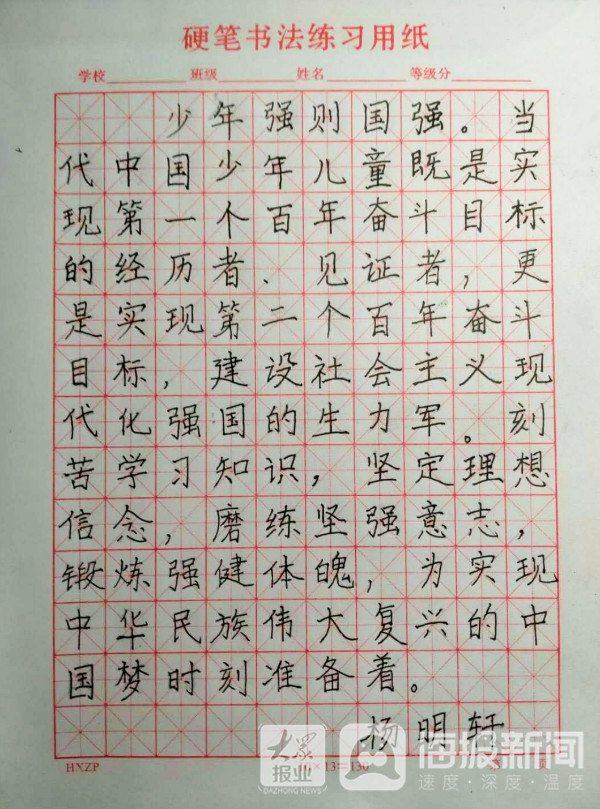 硬笔书法练习用纸
学校 班级 姓名 等级分
少年强则国强。当
代中国少年儿童既是实
现第一个百年奋斗目标
的经历者、见证者,更
是实现第二个百年奋斗
目标,建设社会主义现
代化强国的生力军。刻
苦学习知识,坚定理想
信念,磨练坚强意志,
锻炼强健体魄,为实现
中华民族伟大复兴的中
国梦时刻准备着。
杨明轩
HXZP
大众报业
DAZHONG NEWS
海报新闻
速度·深度·温度